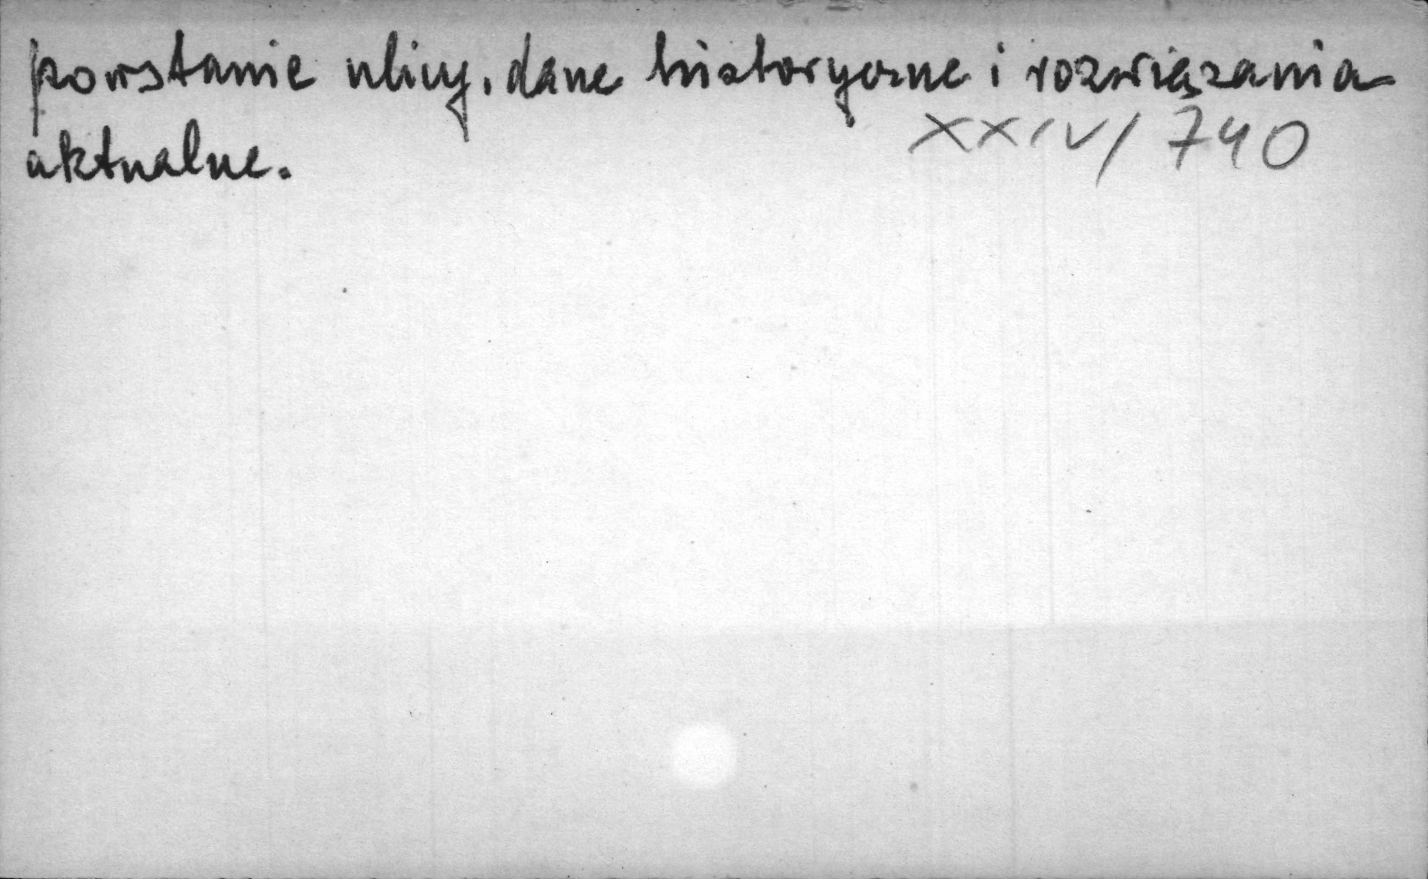 powstanie ulicy, dane historyczne i rozwiązania
XXIV/740
aktualne.